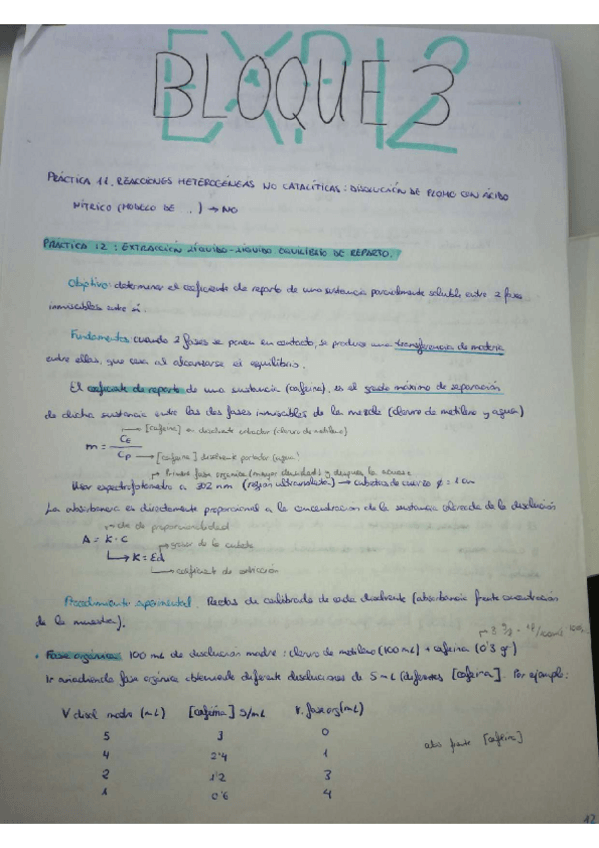 EXP 12
BLOQUE 3
PRÁCTICA 11. REACCIONES HETEROGÉNEAS NO CATALÍTICAS: DISOLUCIÓN DE PLOMO CON ÁCIDO
NÍTRICO (MODELO DE ..) → NO
PRÁCTICA 12: EXTRACCIÓN LÍQUIDO-LÍQUIDO EQUILIBRIO DE REPARTO.
Objetivo: determinar el coeficiente de reparto de una sustancia parcialmente soluble entre 2 fases
inmiscibles entre sí.
Fundamento: cuando 2 fases se ponen en contacto, se produce una transferencia de materia
entre ellas, que cesa al alcanzarse el equilibrio.
El coeficiente de reparto de una sustancia (cafeína), es el grado máximo de separación
de dicha sustancia entre las dos fases inmiscibles de la mezcla (cloruro de metileno y agua)
→ [cafeína] en disolvente extractor (cloruro de metileno)
m = CE / CP → [cafeína] disolvente portador (agua)
→ Primero fase orgánica (mayor densidad) y después la acuosa
Usar espectrofotómetro a 302 nm (región ultravioleta) → cubetas de cuarzo ø = 1 cm
La absorbancia es directamente proporcional a la concentración de la sustancia coloreada de la disolución
→ cte de proporcionalidad
A = K · C
→ grosor de la cubeta
→ K = Ed
→ coeficiente de extinción
Procedimiento experimental. Rectas de calibrado de cada disolvente (absorbancia frente concentración
de la muestra).
• Fase orgánica: 100 mL de disolución madre: cloruro de metileno (100 mL) + cafeína (0'3 g)
Ir añadiendo fase orgánica obteniendo diferentes disoluciones de 5 mL (diferentes [cafeína]. Por ejemplo:
V disol madre (mL) [cafeína] g/mL V. fase org (mL)
5 3 0
4 2'4 1
2 1'2 3
1 0'6 4
abs frente [cafeína]
12